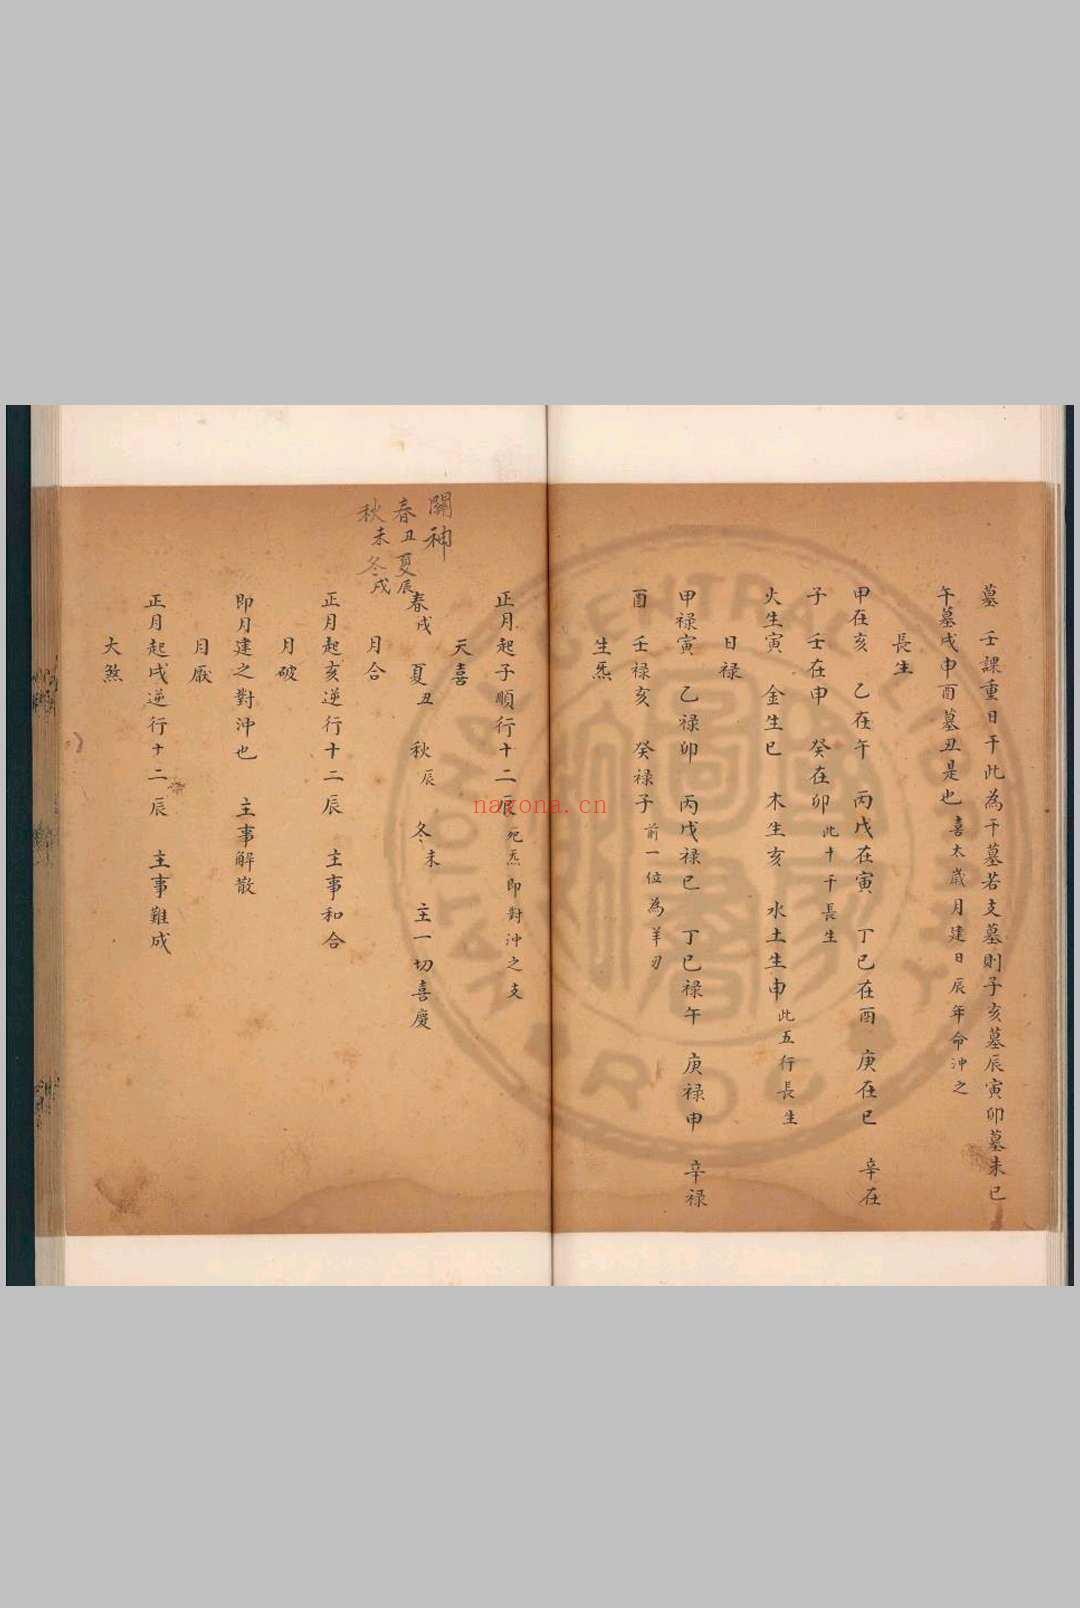 墓　壬課重日干此為干墓若支墓則子亥墓辰寅卯墓未巳
午墓戌申酉墓丑是也喜太歲月建日辰年命沖之
長生
甲在亥　乙在午　丙戊在寅　丁己在酉　庚在巳　辛在
子　壬在申　癸在卯此十干長生
火生寅　金生巳　木生亥　水土生申此五行長生
日禄
甲禄寅　乙禄卯　丙戊禄巳　丁己禄午　庚禄申　辛禄
酉　壬禄亥　癸禄子前一位為羊刃
生炁
正月起子順行十二辰死炁即對沖之支
天喜
關神
春丑夏辰
秋未冬戌
春戌　夏丑　秋辰　冬未　主一切喜慶
月合
正月起亥逆行十二辰　主事和合
月破
即月建之對沖也　主事解散
月厭
正月起戌逆行十二辰　主事難成
大煞
NATIONAL CENTRAL LIBRARY
R.O.C.
naxona.cn